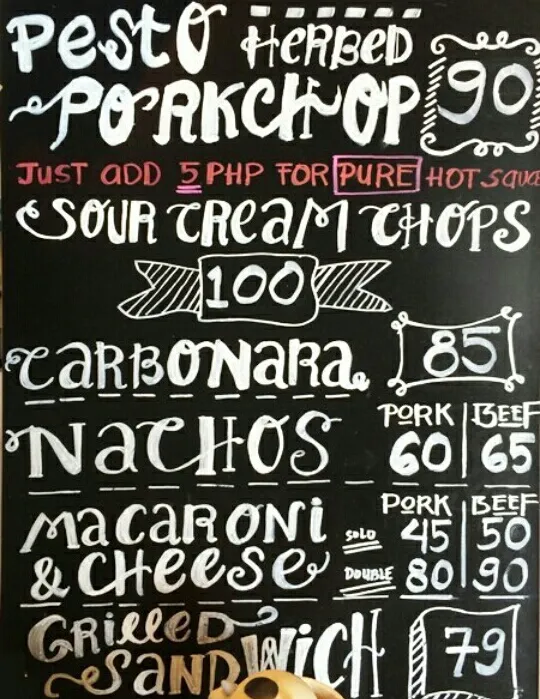 PESTO HERBED
PORKCHOP 90
JUST ADD 5 PHP FOR PURE HOT SAUCE
SOUR CREAM CHOPS
100
CARBONARA 85
NACHOS
PORK BEEF
60 65
MACARONI
& CHEESE
PORK BEEF
SOLO 45 50
DOUBLE 80 90
GRILLED
SANDWICH 79